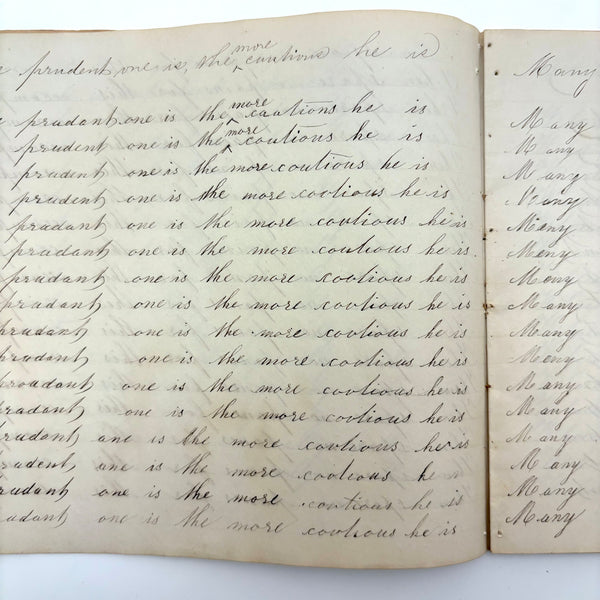 prudent one is, the more cautious he is
prudant one is the more caotions he is
prudent one is the more coutious he is
prudent one is the more coutious he is
prudent one is the more cootious he is
prudant one is the more coutious he is
prudant one is the more coutious he is.
prudant one is the more cootious he is
prudant one is the more cootious he is
prudant one is the more cootious he is
prudant one is the more cootious he is
proudant one is the more cootious he is
prudant one is the more coutious he is
prudent ane is the more coutious he is
prudent ane is the more coutious he
prudant one is the more coutious he is
udant one is the more cootious he is
Many
Many
Many
Many
Many
Many
Meny
Meny
Many
Many
Meny
Many
Many
Many
Many
Many
Many